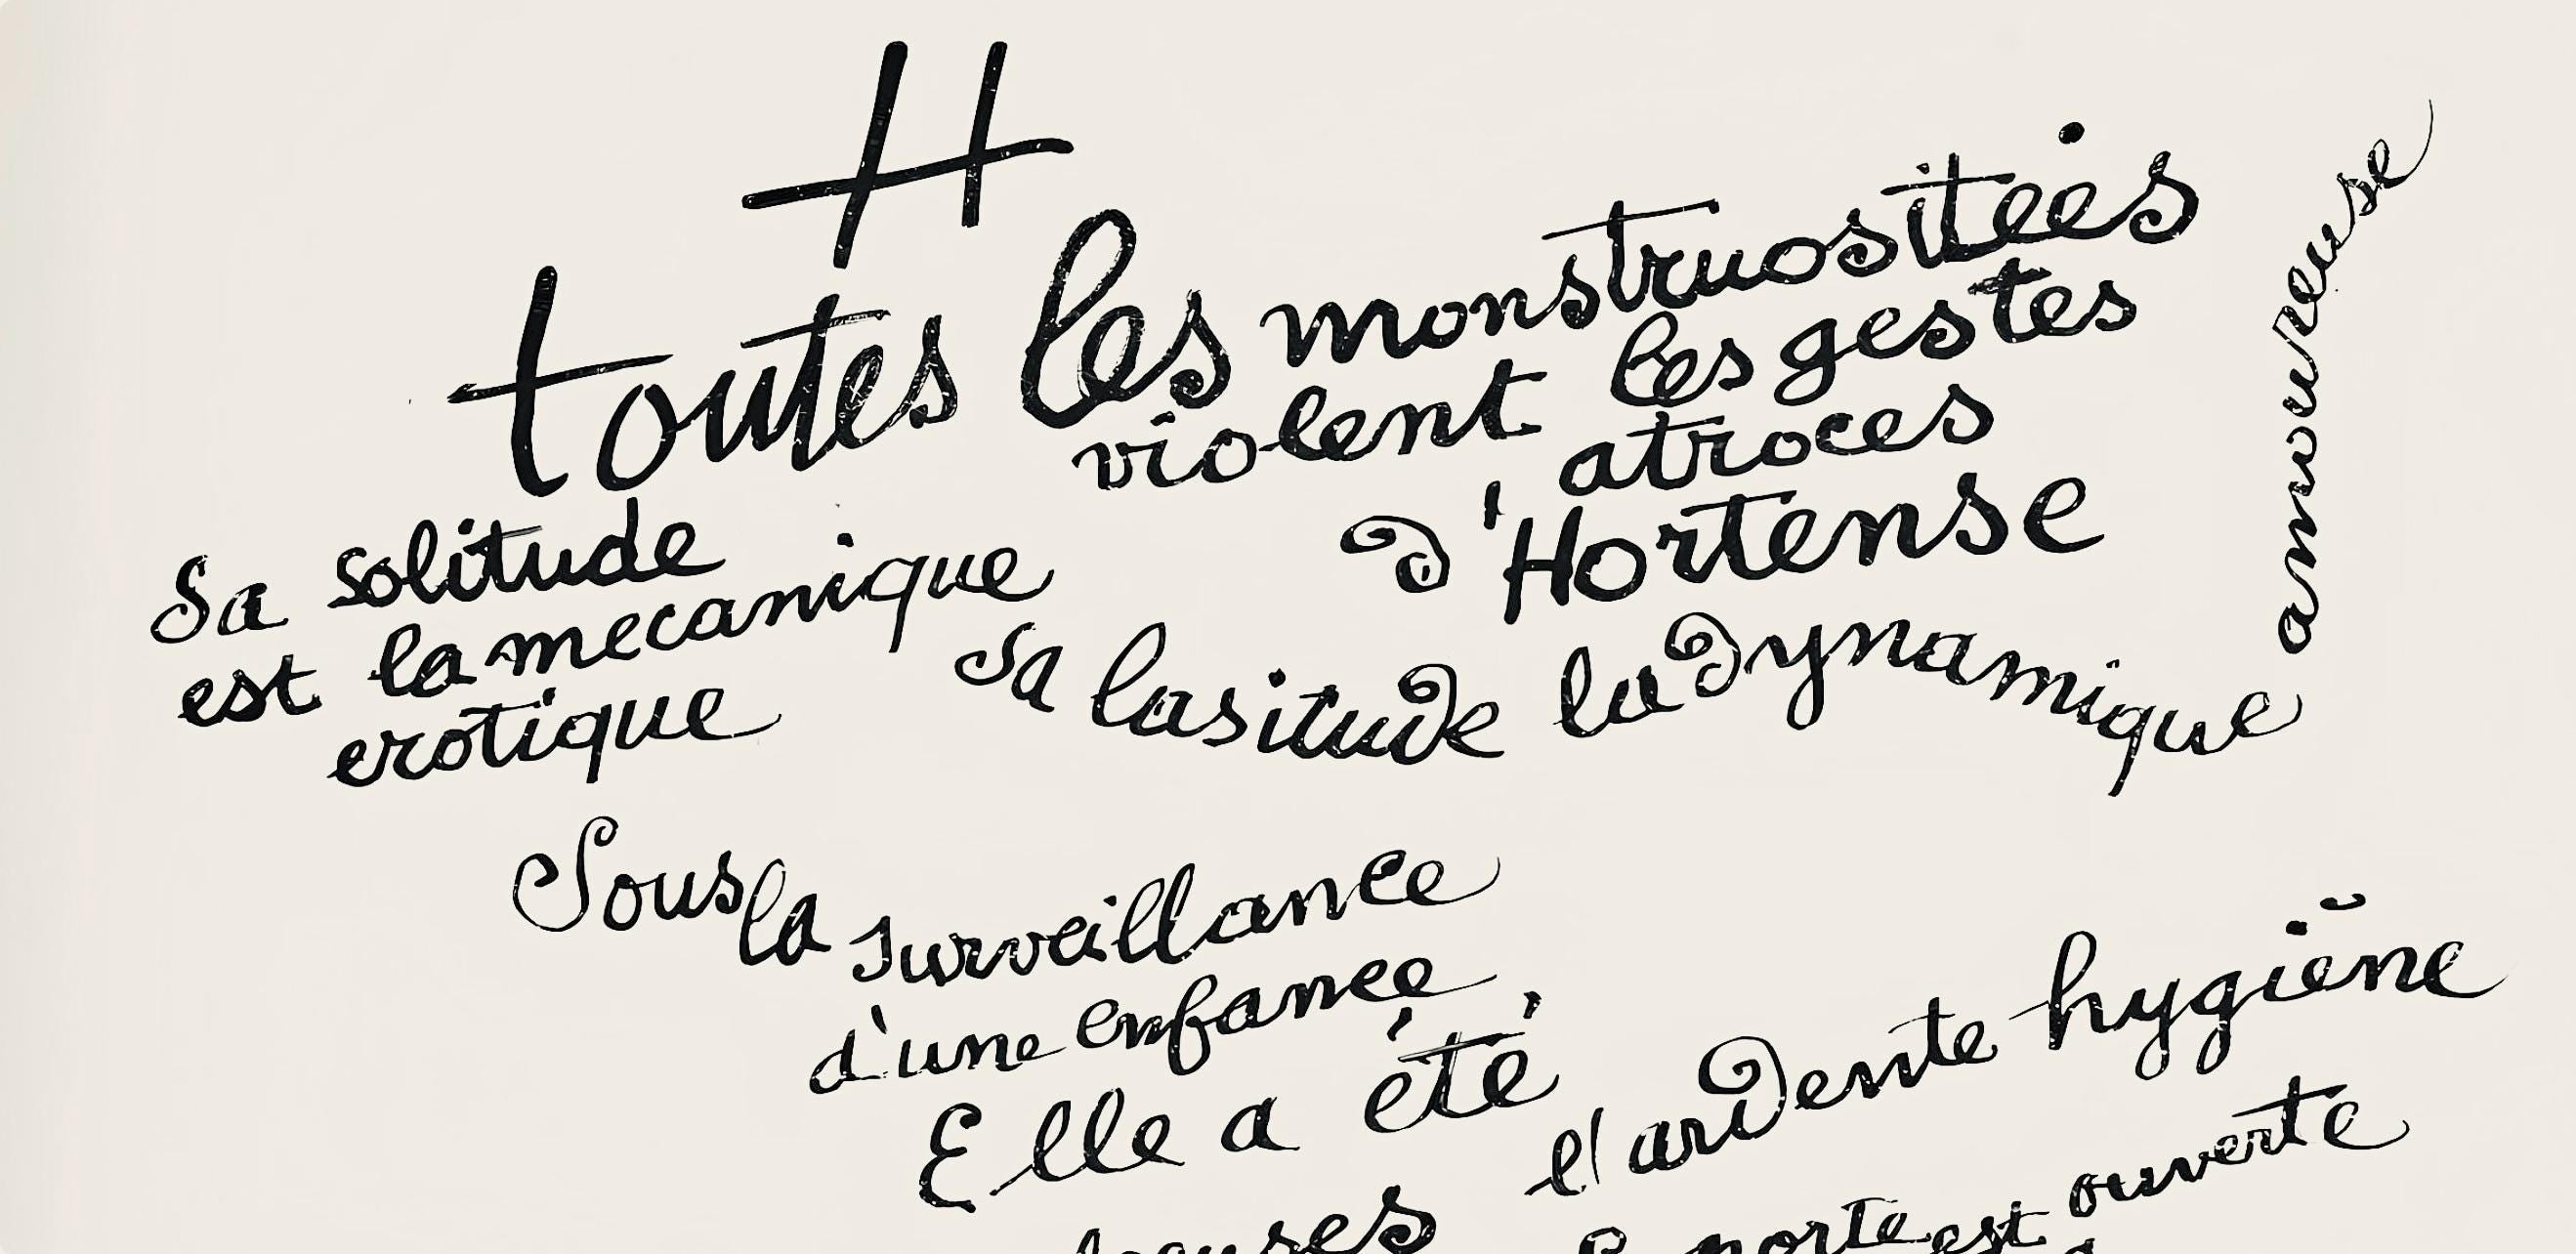 H
toutes les monstruositeés
violent les gestes
atroces
d'Hortense
Sa solitude
est la mecanique
erotique
sa lasitude la dynamique amoureuse
Sous la surveillance
d'une enfance
Elle a été
l'ardente hygiène
porte est ouverte